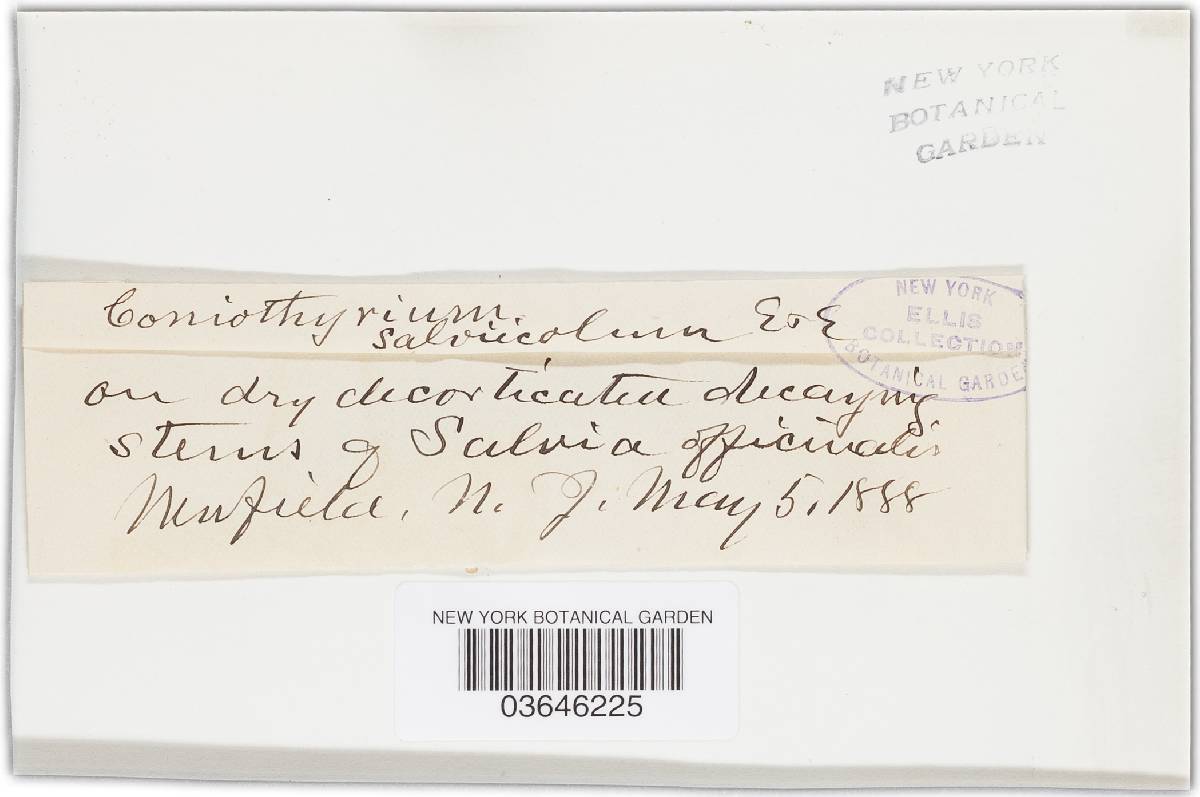 NEW YORK
BOTANICAL
GARDEN
Coniothyrium
salviicolum E & E
NEW YORK
ELLIS
COLLECTION
BOTANICAL GARDE
on dry decorticated decaying
stems of Salvia officinalis
Newfield, N. J. May 5, 1888
NEW YORK BOTANICAL GARDEN
03646225